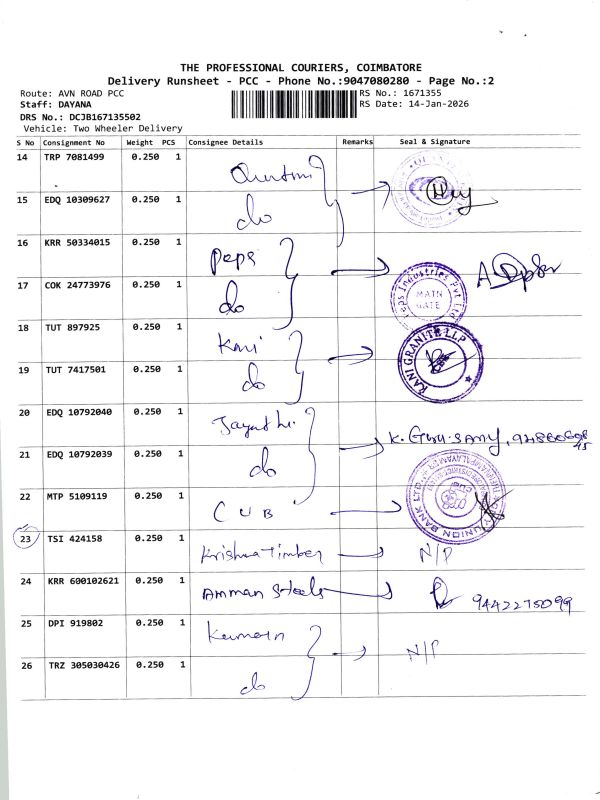 THE PROFESSIONAL COURIERS, COIMBATORE
Delivery Runsheet - PCC - Phone No.:9047080280 - Page No.:2
Route: AVN ROAD PCC RS No.: 1671355
Staff: DAYANA RS Date: 14-Jan-2026
DRS No.: DCJB167135502
Vehicle: Two Wheeler Delivery
S No Consignment No Weight PCS Consignee Details Remarks Seal & Signature
14 TRP 7081499 0.250 1
15 EDQ 10309627 0.250 1 do
16 KRR 50334015 0.250 1 Peps
17 COK 24773976 0.250 1 do Peps Industries Pvt Ltd MAIN GATE
18 TUT 897925 0.250 1 Kani
19 TUT 7417501 0.250 1 do RANI GRANITE LLP
20 EDQ 10792040 0.250 1 Jayathi
21 EDQ 10792039 0.250 1 do
22 MTP 5109119 0.250 1 CUB UNION BANK LTD
23 TSI 424158 0.250 1 Krishna Timber N/P
24 KRR 600102621 0.250 1 Amman Steels 9442275099
25 DPI 919802 0.250 1 N/P
26 TRZ 305030426 0.250 1 do